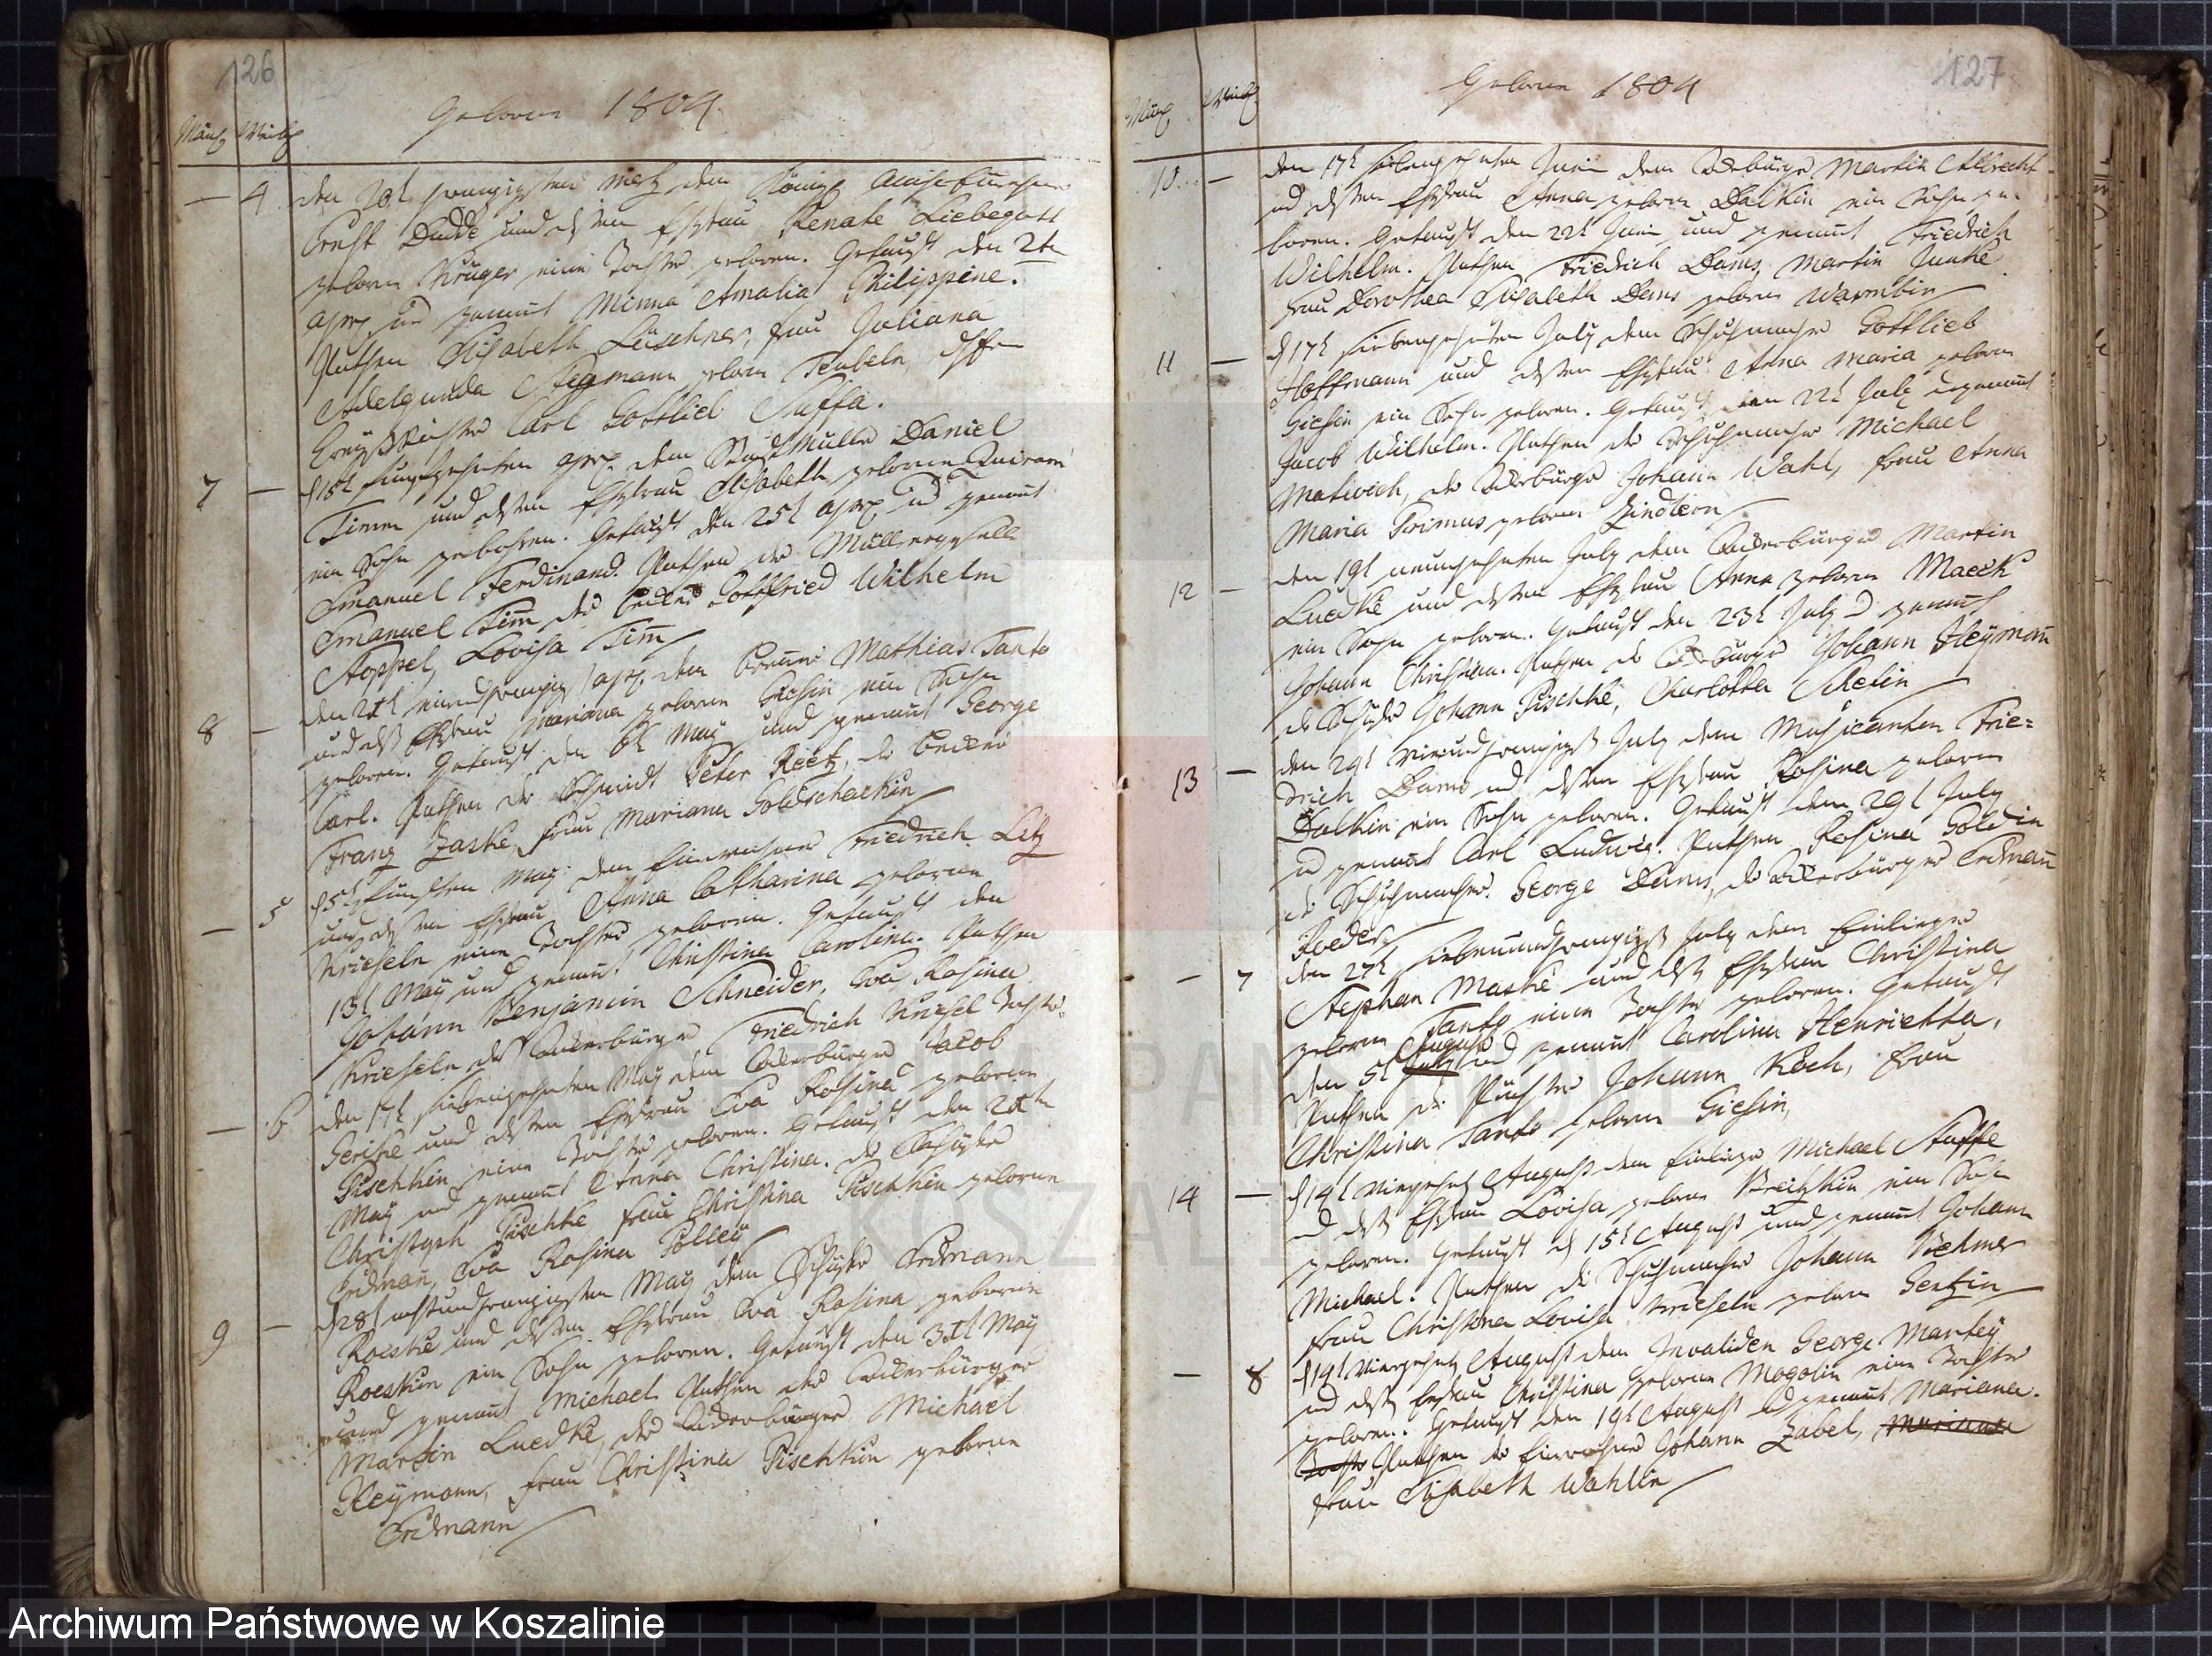 126
Geboren 1804.
Männl Weibl
— 4 den 20t zwanzigsten Mertz dem Königl Accise
Ernst Dudde und dessen Ehefrau Renate Liebegott
geboren Krüger eine Tochter geboren. Getauft den 2tn
April und genannt Minna Amalia Philippine.
Pathen Elisabeth Leüschner, frau Juliana
Adelgunda Stegmann geborn Teubeln,
Carl Gottlieb Suffa.
7 — d 15t funfzehnten Aprl dem Stadt Müller Daniel
Timm und dessen Ehefrau Elisabeth geborne
ein Sohn gebohren. Getauft den 25t Aprl und genannt
Emanuel Ferdinand. Pathen der Müllergeselle
Emanuel Timm, der Becker Gottfried Wilhelm
Stoppel, Lovisa Timm
8 — den Aprl. dem Mathias Tanto
und dess Ehefrau Mariana geboren Giesin ein Sohn
geboren. Getauft den 6t May und genannt George
Carl. Pathen der Schmidt Peter Reetz, der Becker
Franz Zaske, frau Mariana Goldschackin
— 5 d 5t fünften May dem Einwohner Friedrich Litz
und dessen Ehefrau Anna Catharina geborne
Krieseln eine Tochter geboren. Getauft den
13t May und genannt Christina Carolina. Pathen
Johann Benjamin Schneider, Eva Rosina
Krieseln des Ackerbürger Friedrich Kriesel Tochter
— 6 den 17t siebenzehnten May dem Ackerbürger Jacob
Gerihe und dessen Ehefrau Eva Rosina geborne
Pischkin eine Tochter geboren. Getauft den
May und genannt Anna Christina. der Schäfer
Christoph Pischke, frau Christina Pischkin geborne
Erdmañ, Eva Rosina Polley
9 — d 28t achtundzwanzigsten May dem Schäfer Erdmann
Roeske und dessen Ehefrau Eva Rosina geborne
Roeskin ein Sohn geboren. Getauft den May
und genannt Michael. Pathen der Ackerbürger
Martin Luedke, der Ackerbürger Michael
Heymann, frau Christina Pischkin geborne
Erdmann
127
Geboren 1804
Männl Weibl
10 — den 17t siebenzehnten Juni dem Ackbürger Martin Albrecht
und dessen Ehefrau Anna geborn Dalkin ein Sohn ge-
boren. Getauft den 22t Juni und genannt Friedrich
Wilhelm. Pathen Friedrich Dams, Martin Janke
frau Dorothea Elisabeth Dams geborne Warmbir
11 — d 17t siebenzehnten July dem Schuhmacher Gottlieb
Hoffmann und dessen Ehefrau Anna Maria geboren
Giesin ein Sohn geboren. Getauft den 22t July u genannt
Jacob Wilhelm. Pathen der Schuhmacher Michael
der Ackerbürger Johann Wahl, frau Anna
Maria Primus geboren
12 — den 19t neunzehnten July dem Ackerbürger Martin
Luedke und dessen Ehefrau Anna geboren Maeck
ein Sohn geboren. Getauft den 23t July u genannt
Johann Christian. Pathen der Ackerbürger Johann Heymañ
der Schäfer Johann Pischke, Charlotta
13 — den 24t vierundzwanzigst July dem Musicanten Frie=
drich Dams und dessen Ehefrau Rosina geboren
Dalkin ein Sohn geboren. Getauft den 29t July
und genannt Carl Ludwig. Pathen Rosina Goldin
der Schuhmacher George Dams, der Ackerbürger Erdmañ
Roeder
— 7 den 27t siebenundzwanzigst July dem Einlieger
Stephan Maske und dess Ehefrau Christina
geboren Tanto eine Tochter geboren. Getauft
August
den 5t July und genannt Carolina Henrietta.
Pathen der Pächter Johann Koch, frau
Christina Tanto geboren Giesin,
14 — d 14t vierzehnt August dem Einlieger Michael Stuffe
und dess Ehefrau Lovisa geboren ein Sohn
geboren. Getauft d 15t August und genannt Johann
Michael. Pathen der Schuhmacher Johann Boehmer
frau Christina Lovisa Krieseln geboren Gentzin
— 8 d 14t vierzehnt August dem Invaliden George Mantey
und dess Ehefrau Christina geboren Mogolin eine Tochter
geboren. Getauft den 19t August und genannt Mariana.
Tochter Pathen der Einwohner Johann Zabel, Mariana
frau Elisabeth Wahlin
Archiwum Państwowe w Koszalinie